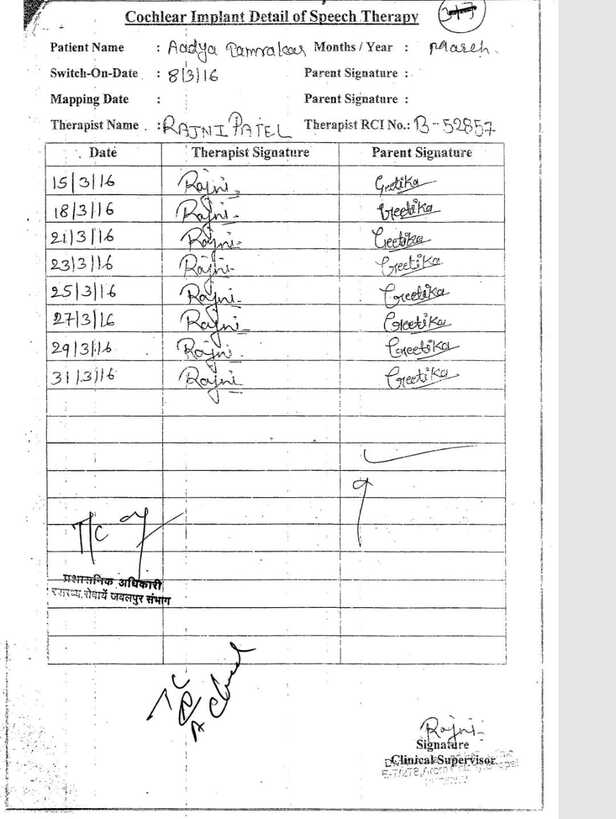 Cochlear Implant Detail of Speech Therapy
Patient Name : Aadya Tamrakar Months / Year : March.
Switch-On-Date : 8/3/16 Parent Signature :
Mapping Date : Parent Signature :
Therapist Name . : RAJNI PATEL Therapist RCI No.: B-52857
Date Therapist Signature Parent Signature
15/3/16 Rajni Geetika
18/3/16 Rajni Geetika
21/3/16 Rajni Geetika
23/3/16 Rajni Geetika
25/3/16 Rajni Geetika
27/3/16 Rajni Geetika
29/3/16 Rajni Geetika
31/3/16 Rajni Geetika
T/C
प्रशासनिक अधिकारी
स्वास्थ्य सेवायें जबलपुर संभाग
TC
Rajni
Signature
Clinical Supervisor